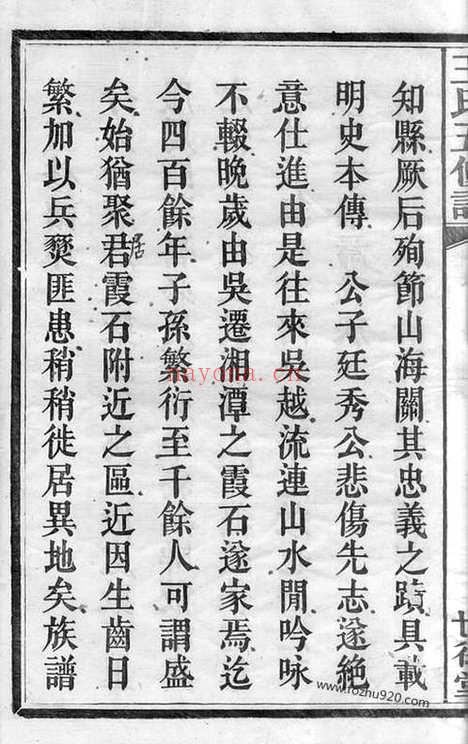 知縣厥后殉節山海關其忠義之蹟具載
明史本傳　公子廷秀公悲傷先志遂絶
意仕進由是往來吳越流連山水閒吟咏
不輟晚歲由吳遷湘潭之霞石遂家焉迄
今四百餘年子孫繁衍至千餘人可謂盛
矣始猶聚君霞石附近之區近因生齒日
居
繁加以兵燹匪患稍稍徙居異地矣族譜
王氏五修譜
nayona.cn
www.rozhu920.com